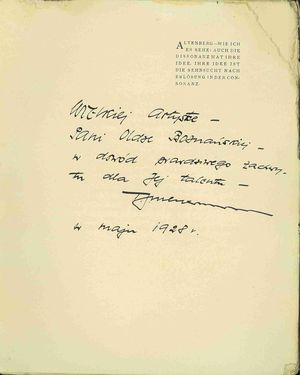 ALTENBERG—WIE ICH
ES SEHE: AUCH DIE
DISSONANZ HAT IHRE
IDEE. IHRE IDEE IST
DIE SEHNSUCHT NACH
ERLÖSUNG IN DER CON-
SONANZ.
Wielkiej Artystce –
Pani Oldze Boznańskiej –
w dowód prawdziwego zachwy-
tu dla Jej talentu –
w maju 1928 r.